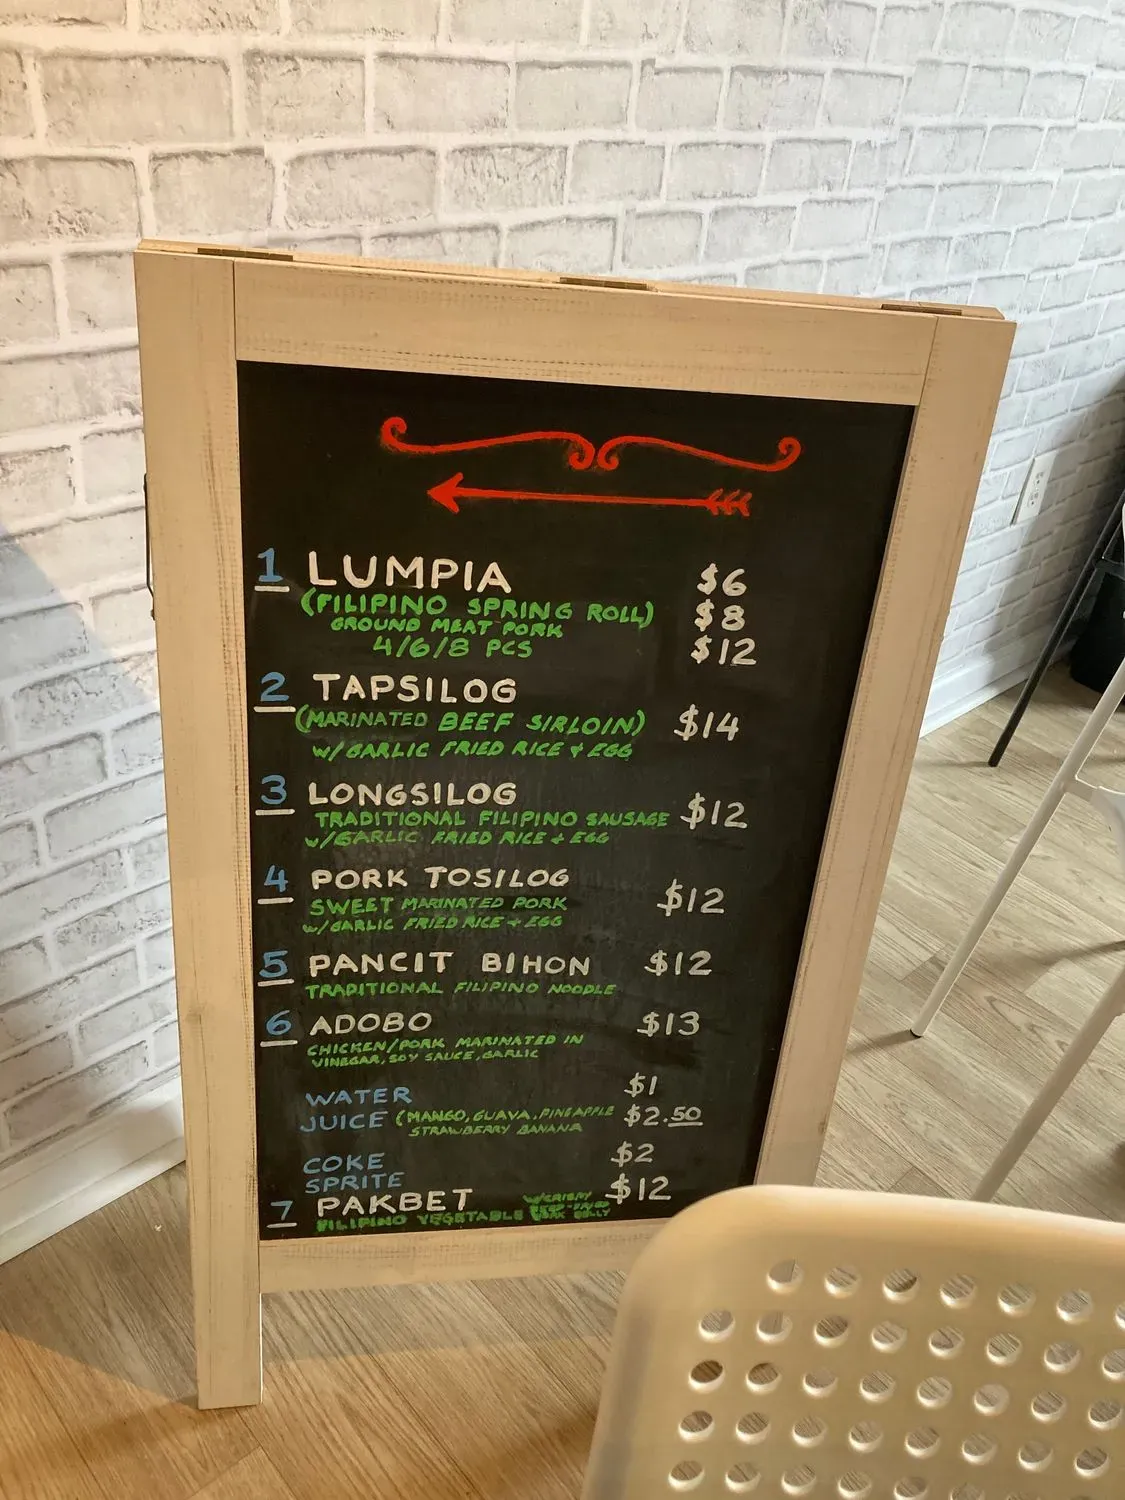 1 LUMPIA $6
(FILIPINO SPRING ROLL) $8
GROUND MEAT PORK
4/6/8 PCS $12
2 TAPSILOG
(MARINATED BEEF SIRLOIN) $14
w/ GARLIC FRIED RICE + EGG
3 LONGSILOG
TRADITIONAL FILIPINO SAUSAGE $12
w/GARLIC FRIED RICE + EGG
4 PORK TOSILOG
SWEET MARINATED PORK $12
w/GARLIC FRIED RICE + EGG
5 PANCIT BIHON $12
TRADITIONAL FILIPINO NOODLE
6 ADOBO $13
CHICKEN/PORK MARINATED IN
VINEGAR, SOY SAUCE, GARLIC
WATER $1
JUICE (MANGO, GUAVA, PINEAPPLE $2.50
STRAWBERRY BANANA
COKE $2
SPRITE
7 PAKBET w/CRISPY $12
FILIPINO VEGETABLE DEEP-FRIED
PORK BELLY